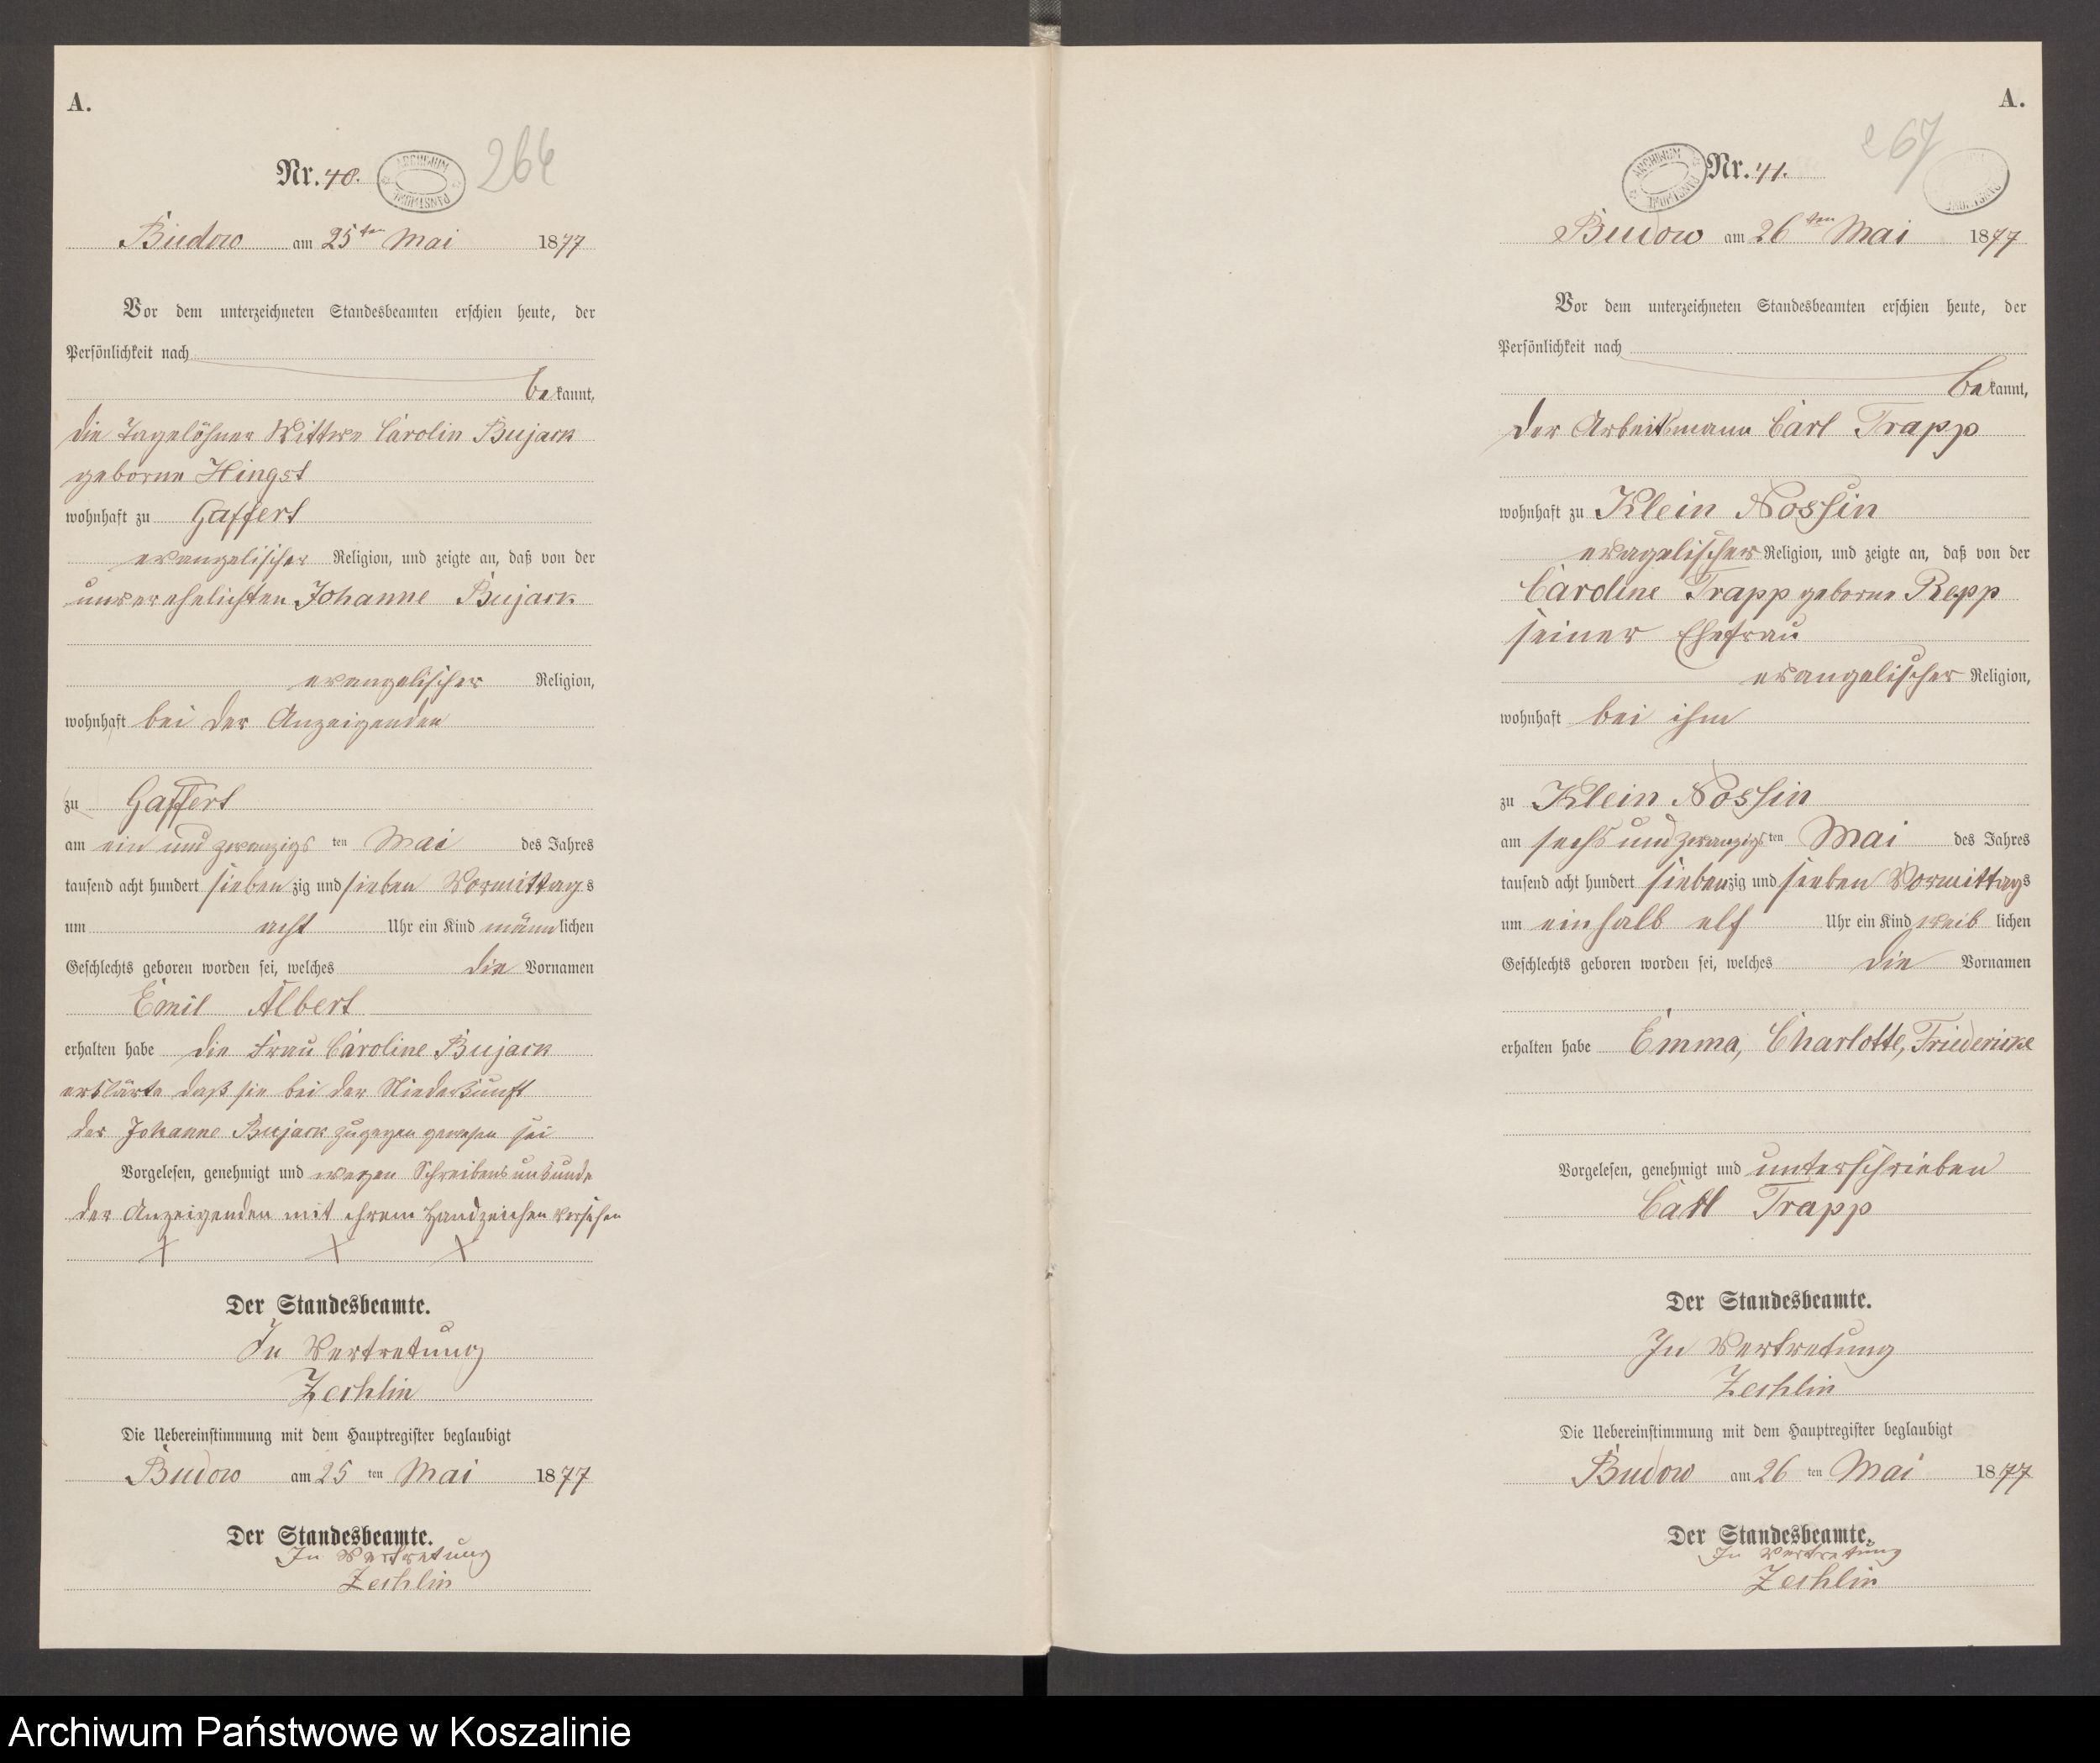 A.
Nr. 40.
ARCHIWUM PAŃSTWOWE
266
Budow am 25ten Mai 1877
Vor dem unterzeichneten Standesbeamten erschien heute, der
Persönlichkeit nach
bekannt,
die Tagelöhner Wittwe Carolin Bujack
geborne Hingst
wohnhaft zu Gaffert
evangelischer Religion, und zeigte an, daß von der
unverehelichten Johanne Bujack
evangelischer Religion,
wohnhaft bei der Anzeigenden
zu Gaffert
am ein und zwanzigsten Mai des Jahres
tausend acht hundert siebenzig und sieben Vormittags
um acht Uhr ein Kind männlichen
Geschlechts geboren worden sei, welches die Vornamen
Emil Albert
erhalten habe die Frau Caroline Bujack
erklärte daß sie bei der Niederkunft
der Johanne Bujack zugegen gewesen sei
Vorgelesen, genehmigt und wegen Schreibensunkunde
der Anzeigenden mit ihrem Handzeichen versehen
X X X
Der Standesbeamte.
In Vertretung
Zechlin
Die Uebereinstimmung mit dem Hauptregister beglaubigt
Budow am 25 ten Mai 1877
Der Standesbeamte.
In Vertretung
Zechlin
A.
267
ARCHIWUM PAŃSTWOWE
Nr. 41.
Budow am 26ten Mai 1877
Vor dem unterzeichneten Standesbeamten erschien heute, der
Persönlichkeit nach
bekannt,
der Arbeitsmann Carl Trapp
wohnhaft zu Klein Nossin
evagelischer Religion, und zeigte an, daß von der
Caroline Trapp geborne Repp
seiner Ehefrau
evangelischer Religion,
wohnhaft bei ihm
zu Klein Nossin
am sechs und zwanzigsten Mai des Jahres
tausend acht hundert siebenzig und sieben Vormittags
um ein halb elf Uhr ein Kind weiblichen
Geschlechts geboren worden sei, welches die Vornamen
erhalten habe Emma, Charlotte, Friedericke
Vorgelesen, genehmigt und unterschrieben
Carl Trapp
Der Standesbeamte.
In Vertretung
Zechlin
Die Uebereinstimmung mit dem Hauptregister beglaubigt
Budow am 26 ten Mai 1877
Der Standesbeamte.
In Vertretung
Zechlin
Archiwum Państwowe w Koszalinie